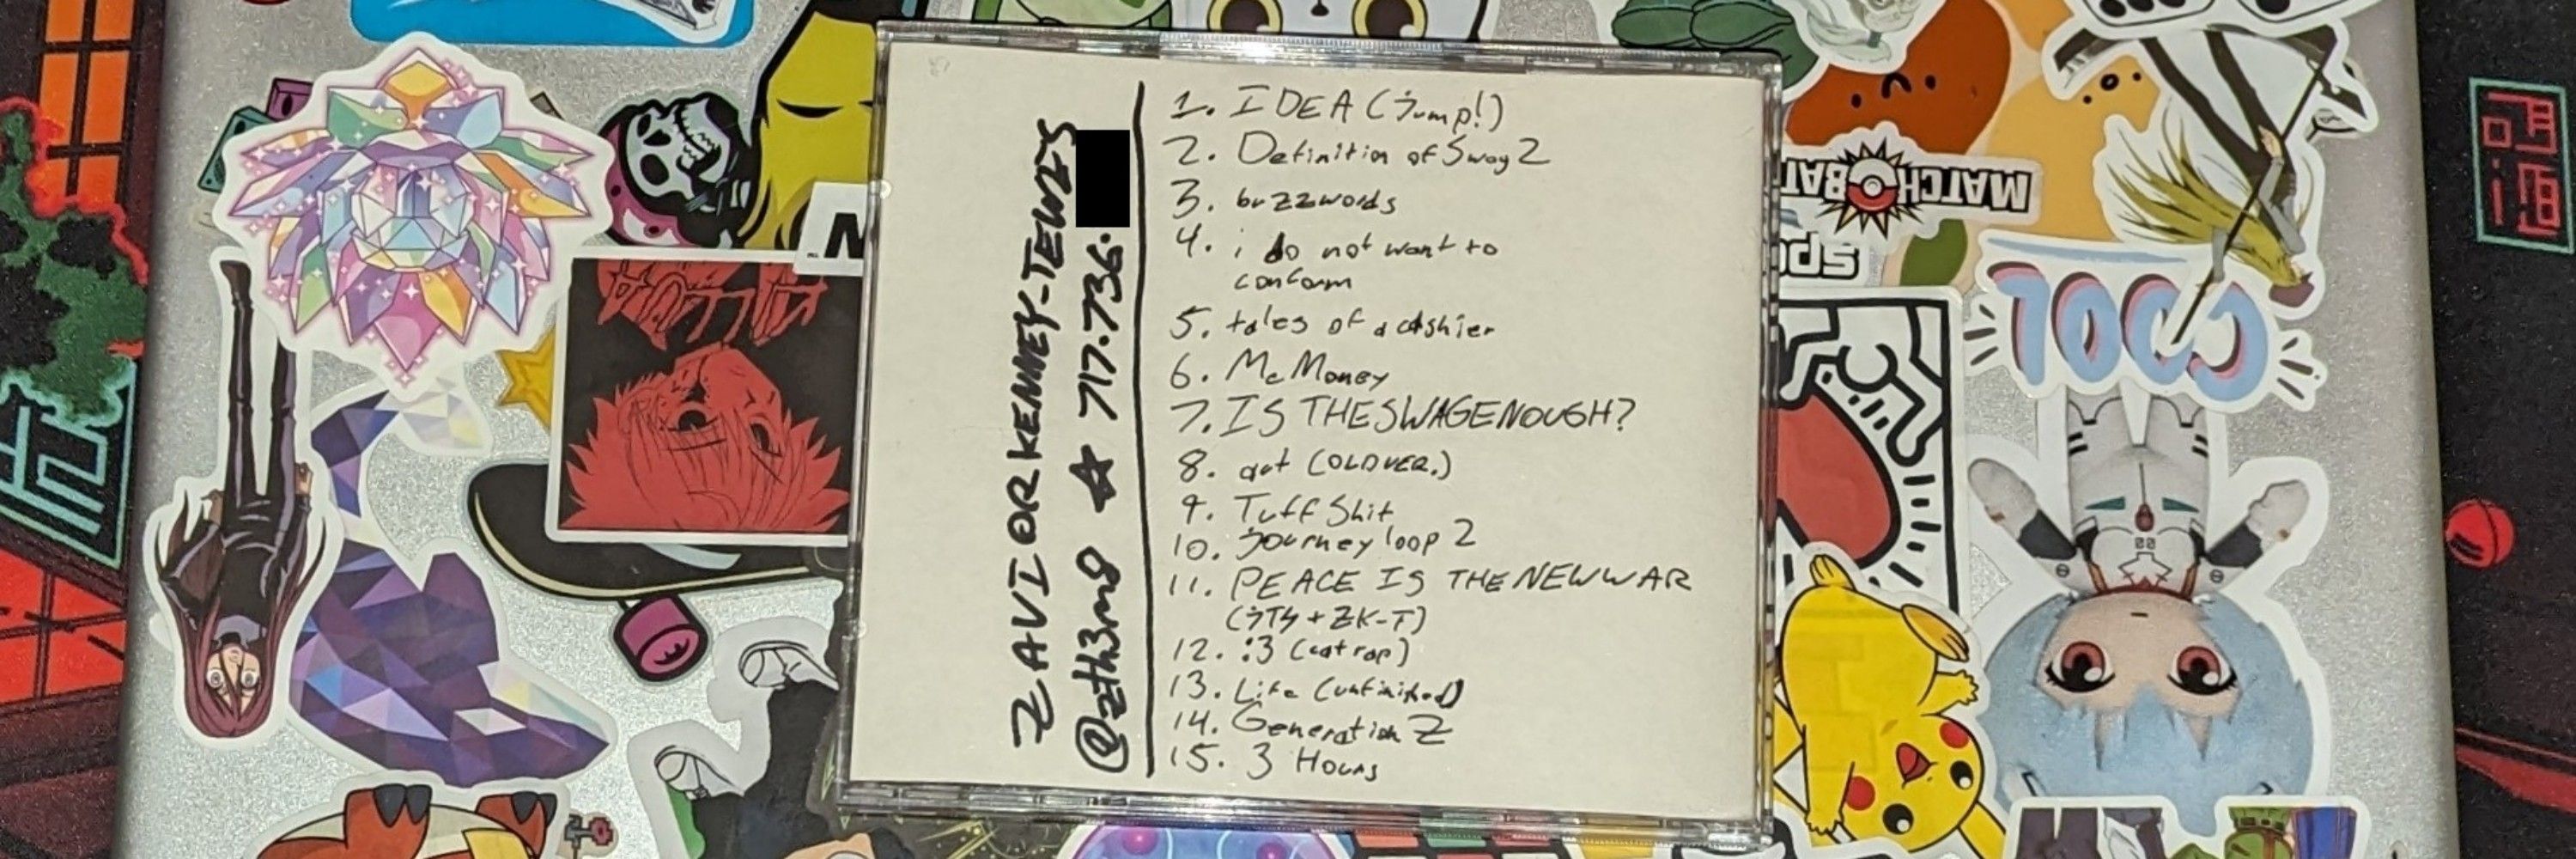 ZAVIOR KENNEY-TEWES
@zth3m8 ☆ 717.736.
1. IDEA (Jump!)
2. Definition of Swag 2
3. buzzwords
4. i do not want to
conform
5. tales of a cashier
6. McMoney
7. IS THE SWAG ENOUGH?
8. out (OLD VER.)
9. Tuff Shit
10. journey loop 2
11. PEACE IS THE NEW WAR
(JTS + ZK-T)
12. :3 (cat rap)
13. Life (unfinished)
14. Generation Z
15. 3 Hours
MATCH BAT
COOL